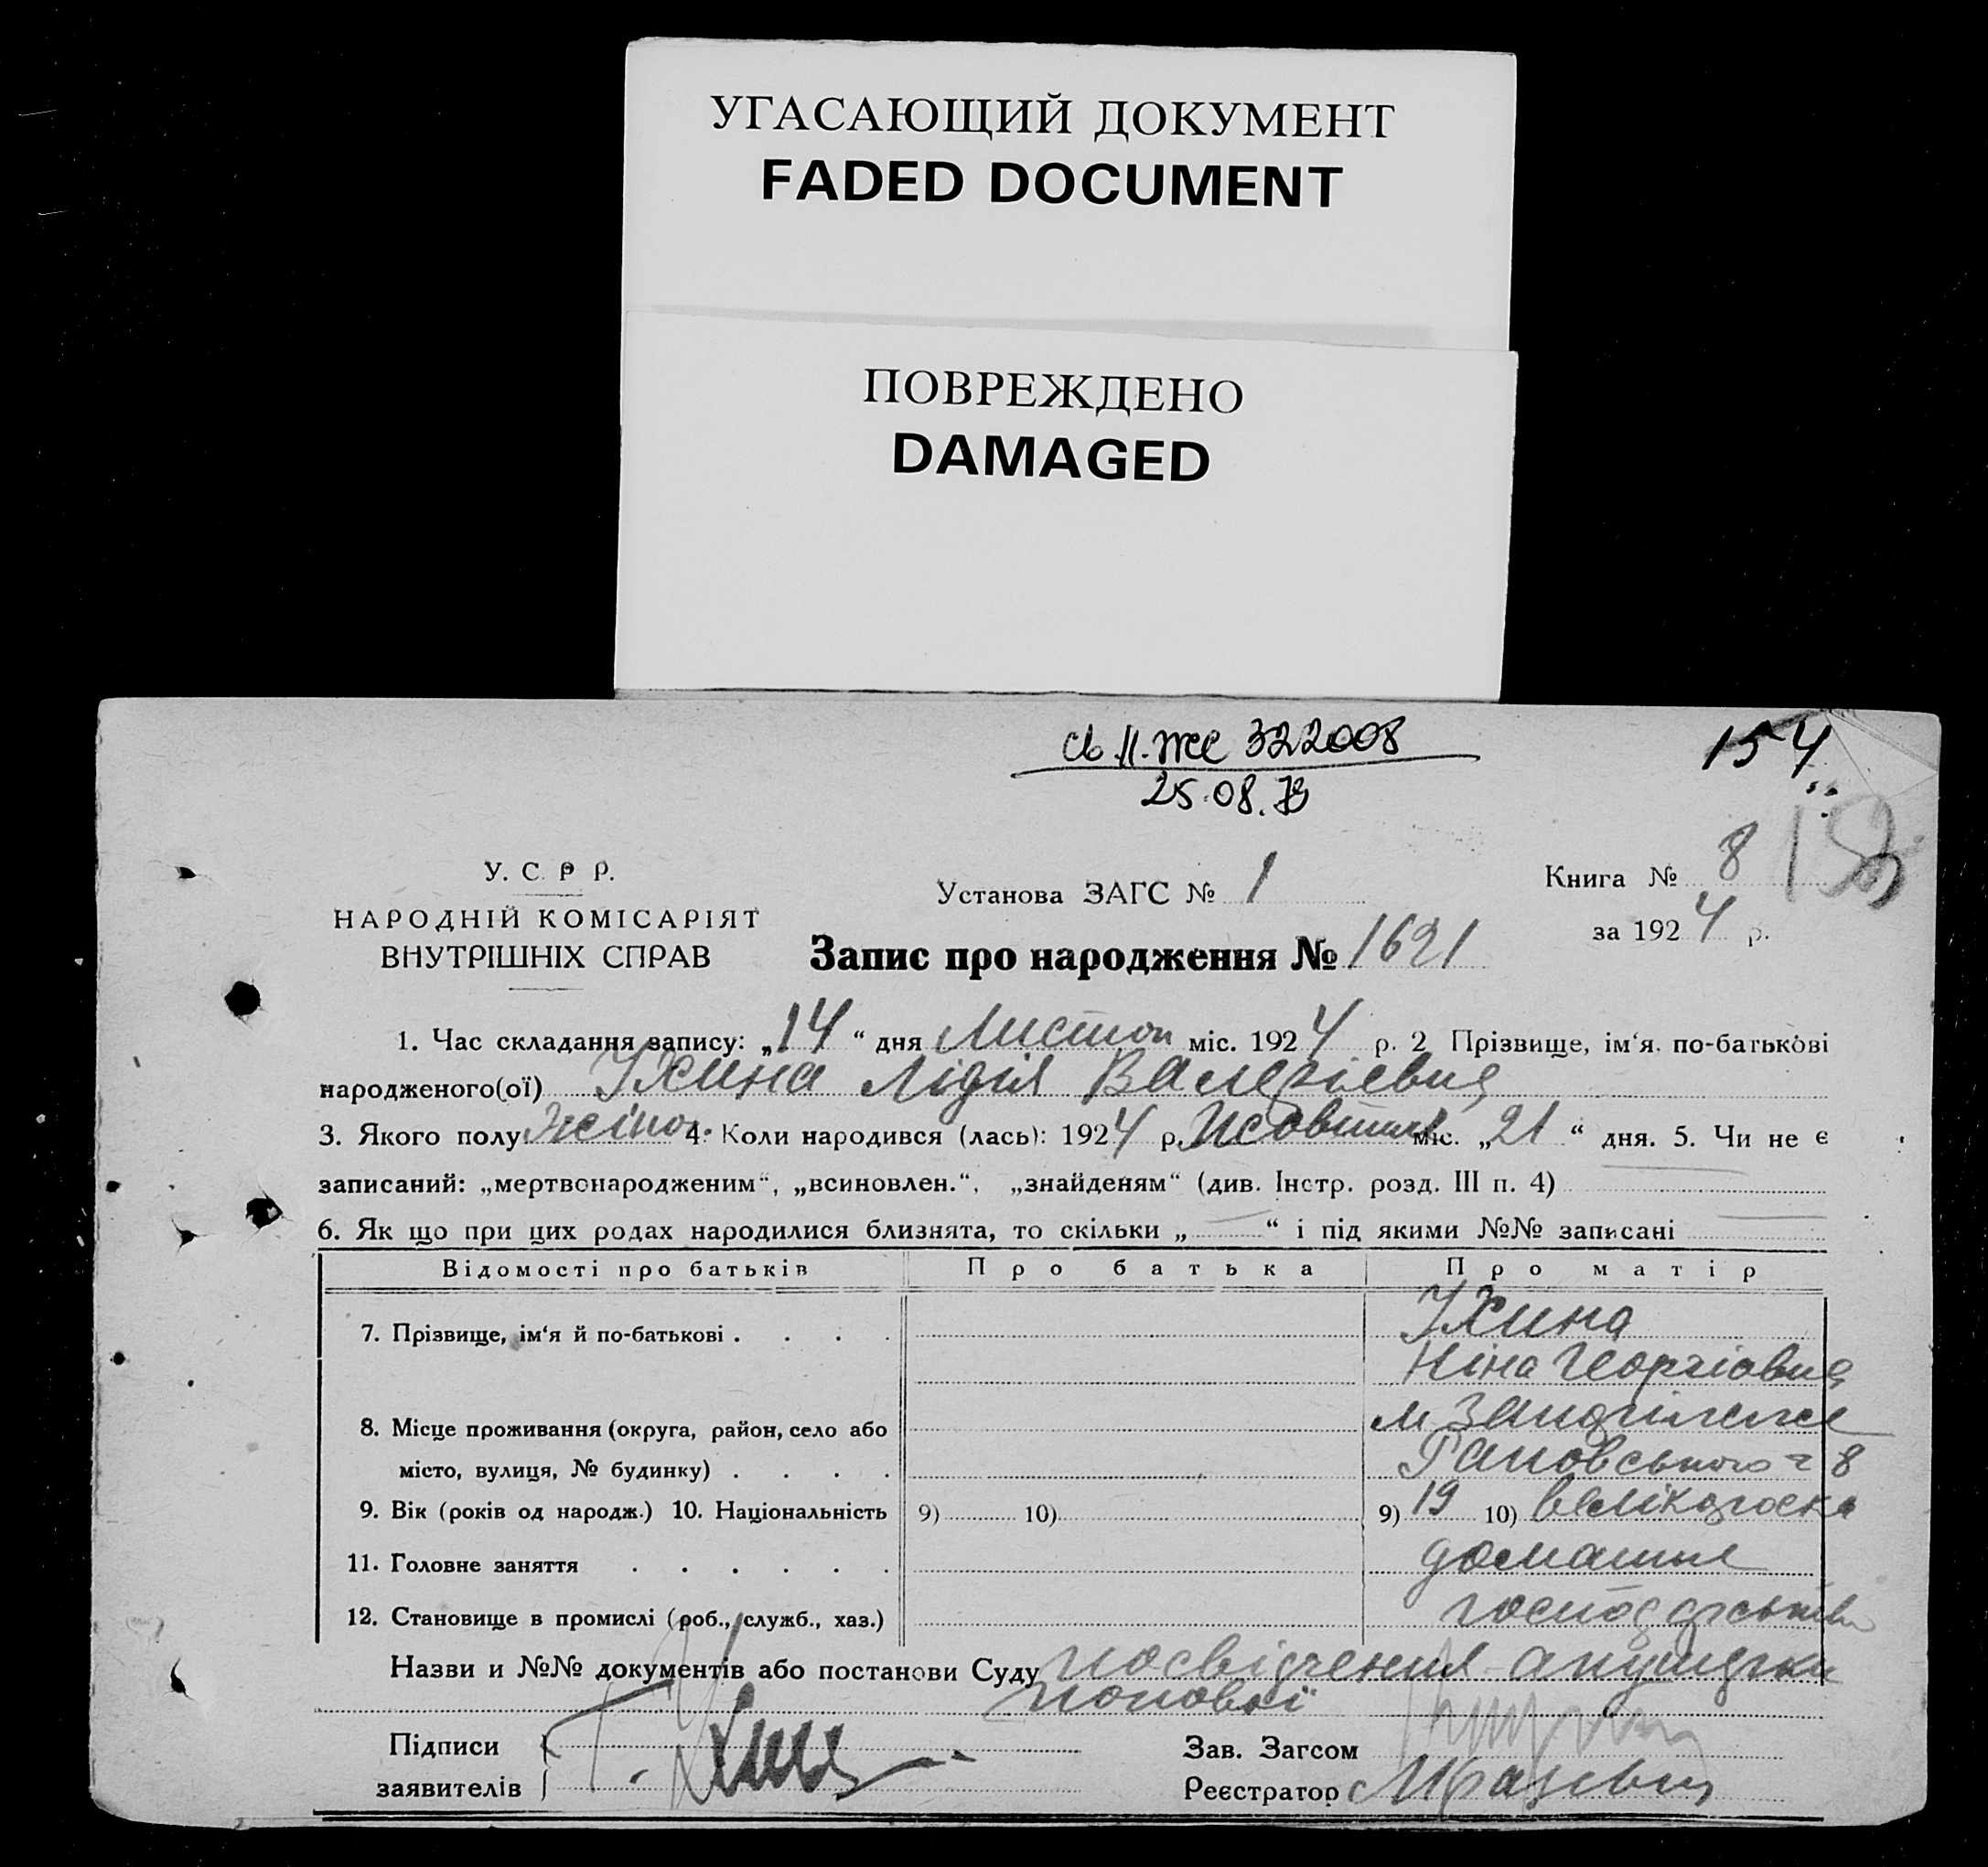 УГАСАЮЩИЙ ДОКУМЕНТ
FADED DOCUMENT
ПОВРЕЖДЕНО
DAMAGED
322008
25.08.
154
У. С. Р Р.
НАРОДНІЙ КОМІСАРІЯТ
ВНУТРІШНІХ СПРАВ
Установа ЗАГС № 1
Книга № 8
за 1924 р.
Запис про народження № 1621
1. Час складання запису: „14“ дня Листоп міс. 1924 р. 2 Прізвище, ім‘я. по-батькові
народженого(ої) Ухина Лідія Валеріевна
3. Якого полу жіноч. 4. Коли народився (лась): 1924 р. Жовтня міс. „21“ дня. 5. Чи не є
записаний: „мертвонародженим“, „всиновлен.“, „знайденям“ (див. Інстр. розд. III п. 4)
6. Як що при цих родах народилися близнята, то скільки „ “ і під якими №№ записані
Відомості про батьків Про батька Про матір
7. Прізвище, ім‘я й по-батькові . . . . Ухина
Ніна Георгіовна
8. Місце проживання (округа, район, село або м
місто, вулиця, № будинку) . . . . 8
9. Вік (років од народж.) 10. Національність 9) 10) 9) 19 10) великороска
11. Головне заняття . . . . . . домашнє
12. Становище в промислі (роб., служб., хаз.) господарство
Назви и №№ документів або постанови Суду посвідчення акушерки
Попової
Підписи
заявителів
Зав. Загсом
Реєстратор